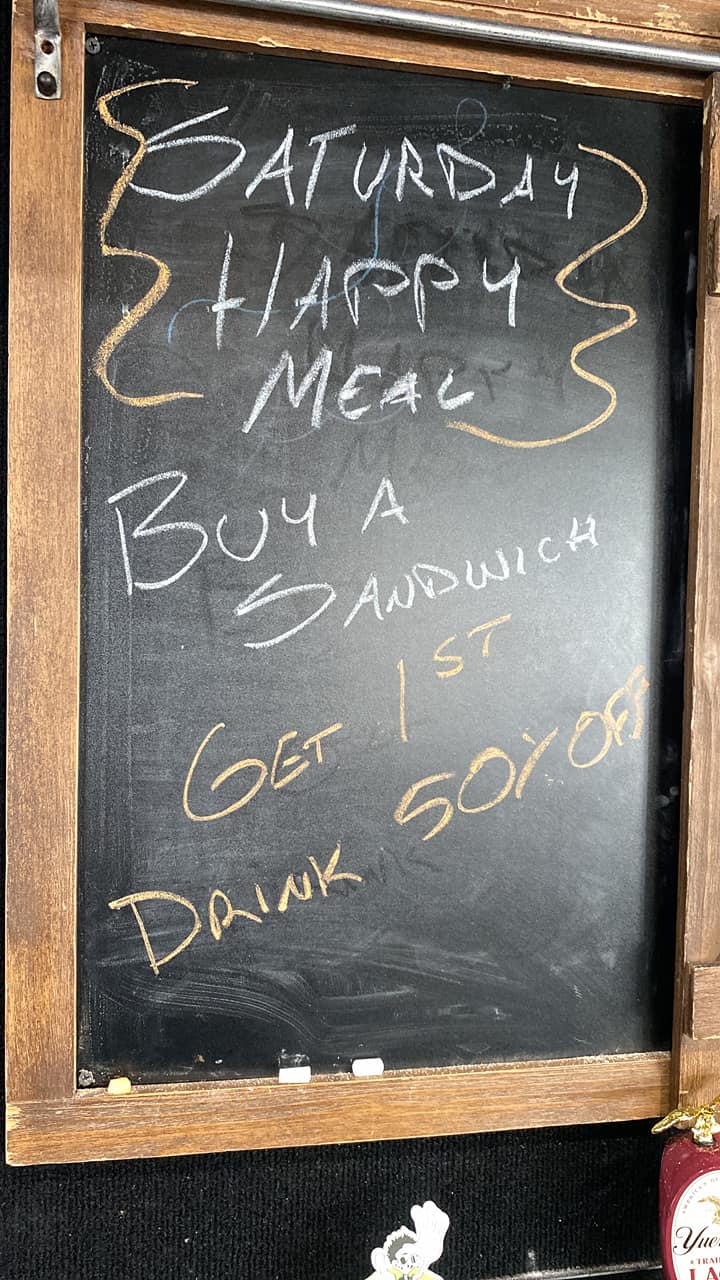 SATURDAY
HAPPY
MEAL
BUY A
SANDWICH
GET 1ST
DRINK 50% OFF
Yue
LA